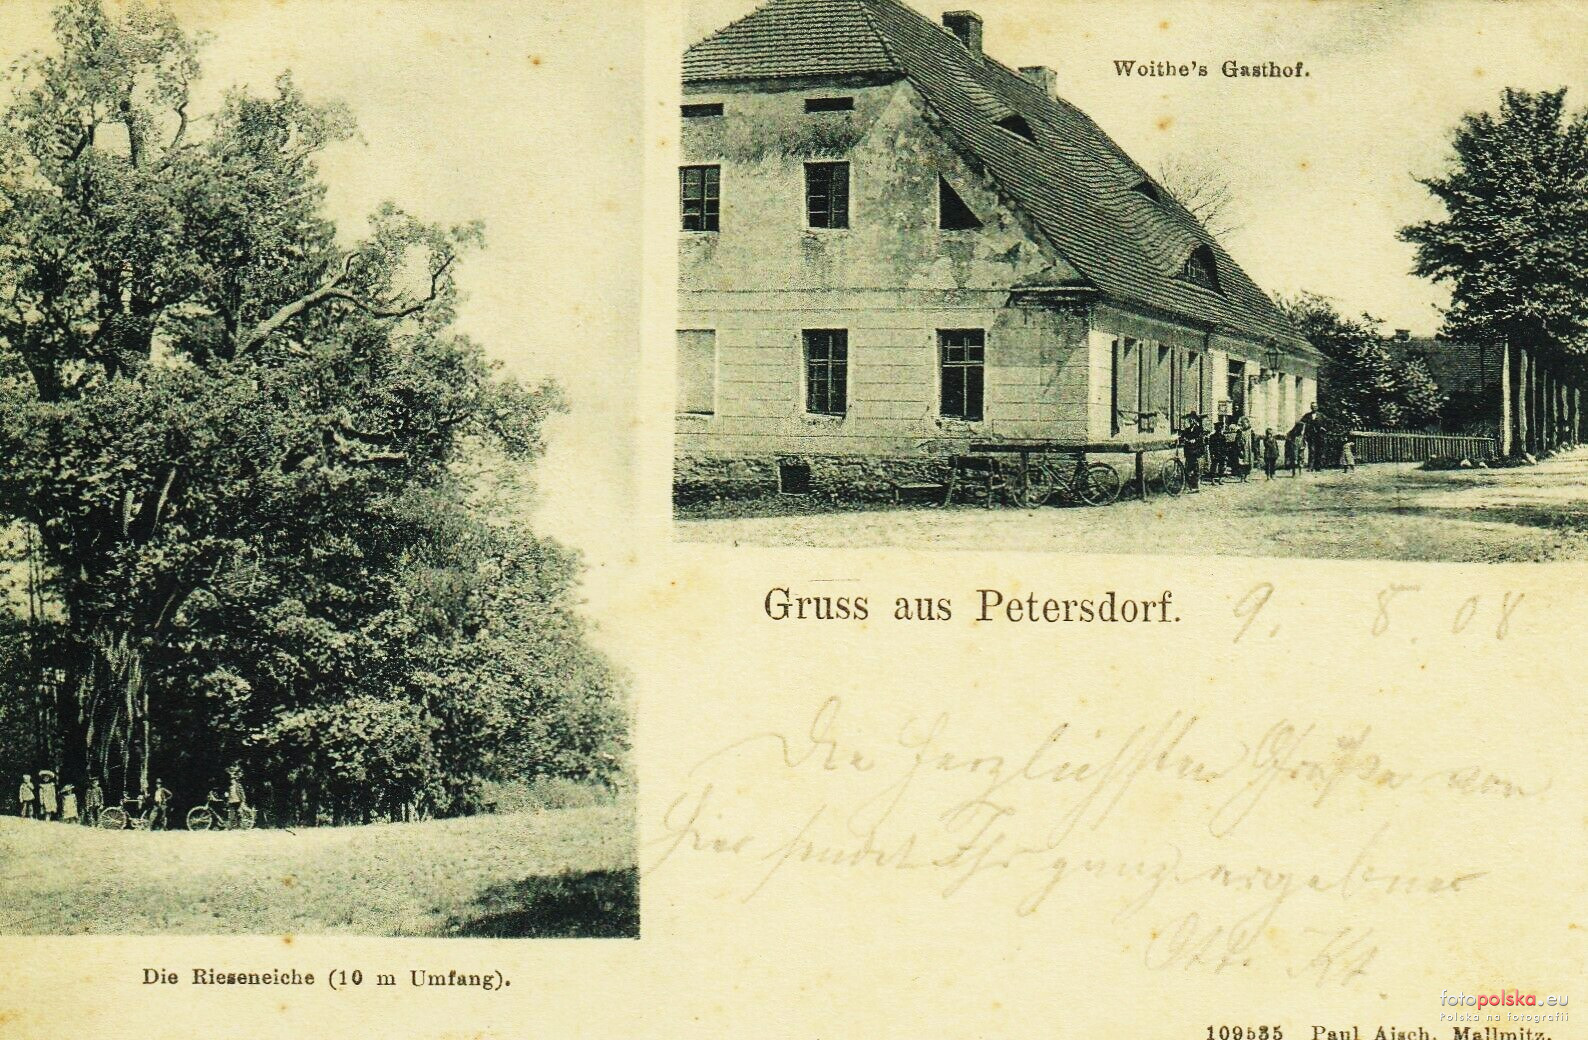 Woithe's Gasthof.
Gruss aus Petersdorf. 9. 8. 08
Die herzlichsten Grüße von
hier sendet Ihr ganz ergebener
Die Rieseneiche (10 m Umfang).
fotopolska.eu
Polska na fotografii
109535 Paul Aisch, Mallmitz.